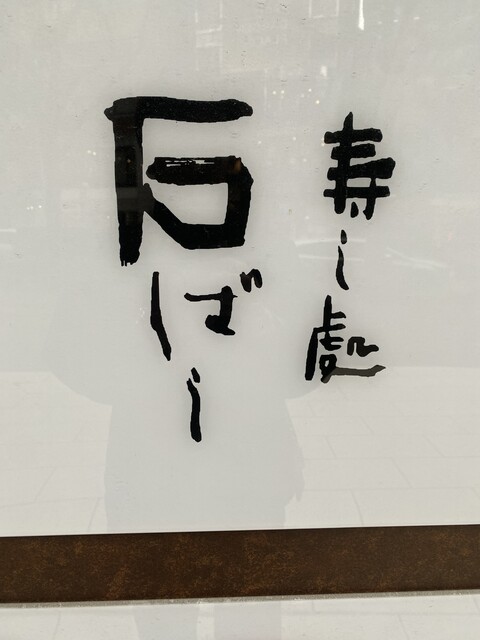 寿し處
石ばし